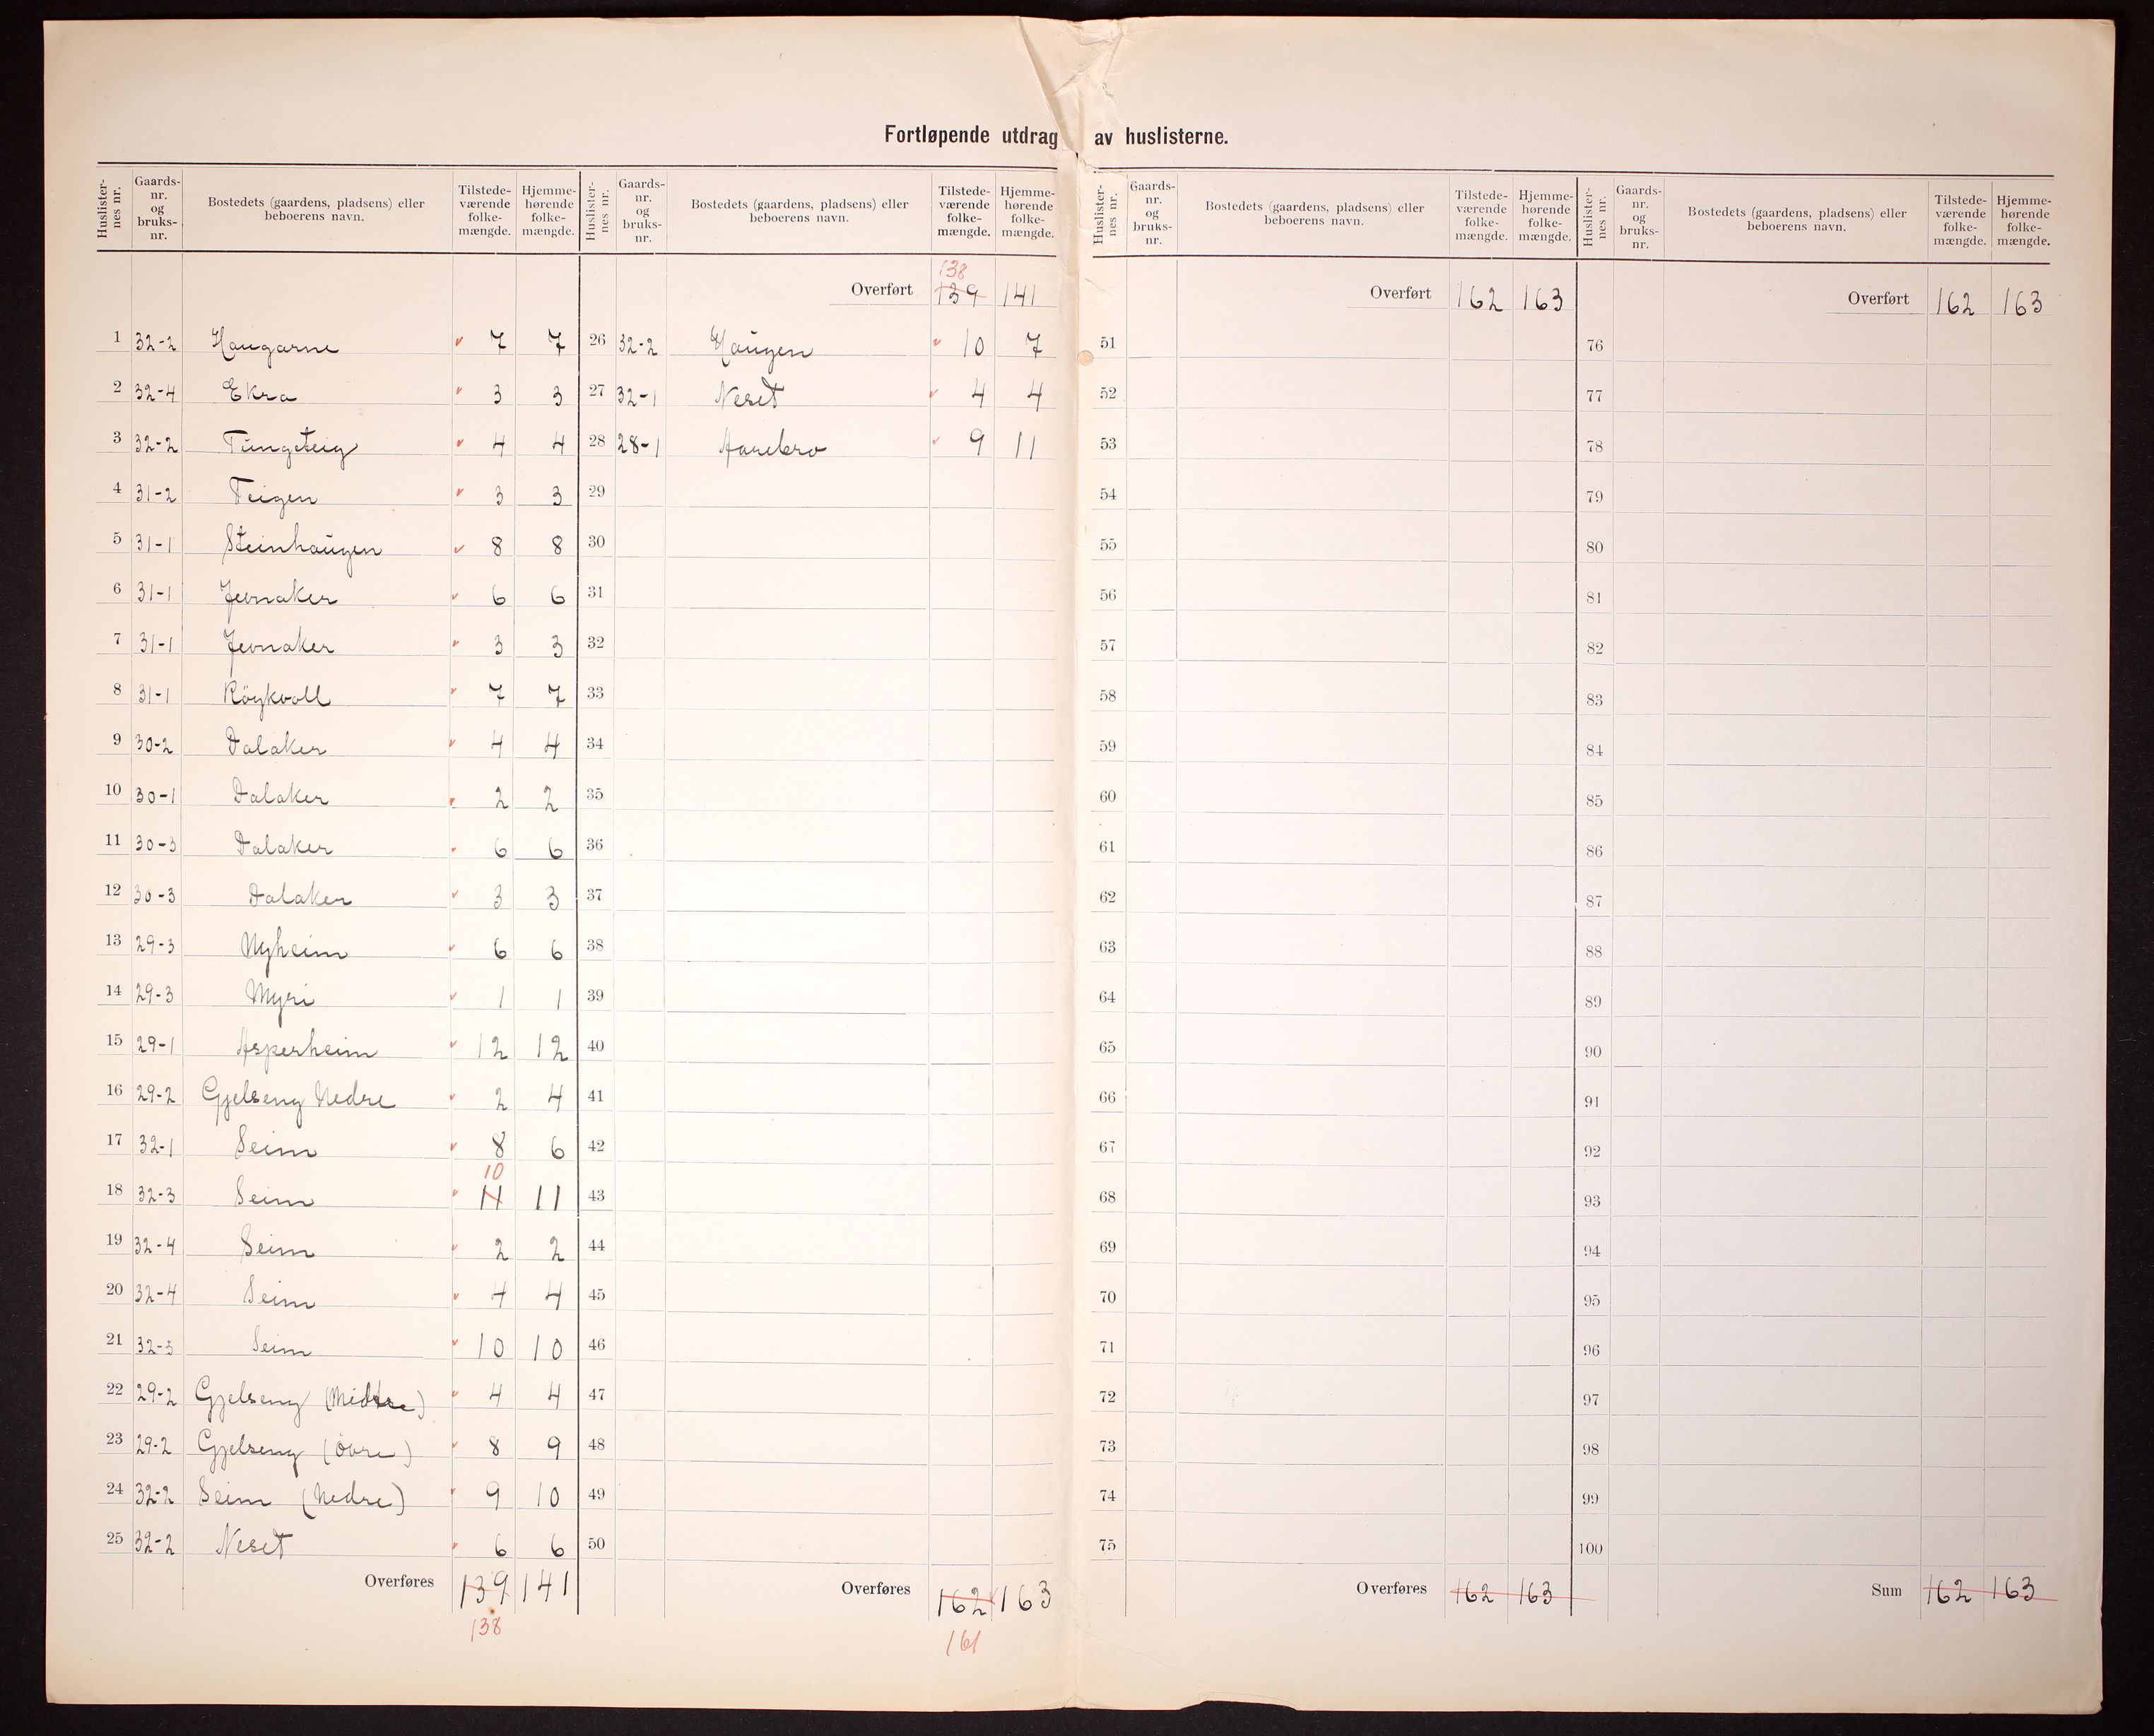 Fortløpende utdrag av huslisterne.
Huslister-nes nr. Gaards-nr. og bruks-nr. Bostedets (gaardens, pladsens) eller beboerens navn. Tilstede-værende folke-mængde. Hjemme-hørende folke-mængde.
1 32-2 Haugarne 7 7
2 32-4 Ekra 3 3
3 32-2 Tungeteig 4 4
4 31-2 Teigen 3 3
5 31-1 Steinhaugen 8 8
6 31-1 Jevnaker 6 6
7 31-1 Jevnaker 3 3
8 31-1 Röykvoll 7 7
9 30-2 Dalaker 4 4
10 30-1 Dalaker 2 2
11 30-3 Dalaker 6 6
12 30-3 Dalaker 3 3
13 29-3 Nyheim 6 6
14 29-3 Myri 1 1
15 29-1 Asperheim 12 12
16 29-2 Gjelseng Nedre 2 4
17 32-1 Seim 8 6
10
18 32-3 Seim 11 11
19 32-4 Seim 2 2
20 32-4 Seim 4 4
21 32-5 Seim 10 10
22 29-2 Gjelseng (Midtre) 4 4
23 29-2 Gjelseng (Övre) 8 9
24 32-2 Seim (Nedre) 9 10
25 32-2 Neset 6 6
Overføres 139 141
138
Huslister-nes nr. Gaards-nr. og bruks-nr. Bostedets (gaardens, pladsens) eller beboerens navn. Tilstede-værende folke-mængde. Hjemme-hørende folke-mængde.
138
Overført 139 141
26 32-2 Haugen 10 7
27 32-1 Neset 4 4
28 28-1 Aarebro 9 11
29
30
31
32
33
34
35
36
37
38
39
40
41
42
43
44
45
46
47
48
49
50
Overføres 162 163
161
Huslister-nes nr. Gaards-nr. og bruks-nr. Bostedets (gaardens, pladsens) eller beboerens navn. Tilstede-værende folke-mængde. Hjemme-hørende folke-mængde.
Overført 162 163
51
52
53
54
55
56
57
58
59
60
61
62
63
64
65
66
67
68
69
70
71
72
73
74
75
Overføres 162 163
Huslister-nes nr. Gaards-nr. og bruks-nr. Bostedets (gaardens, pladsens) eller beboerens navn. Tilstede-værende folke-mængde. Hjemme-hørende folke-mængde.
Overført 162 163
76
77
78
79
80
81
82
83
84
85
86
87
88
89
90
91
92
93
94
95
96
97
98
99
100
Sum 162 163